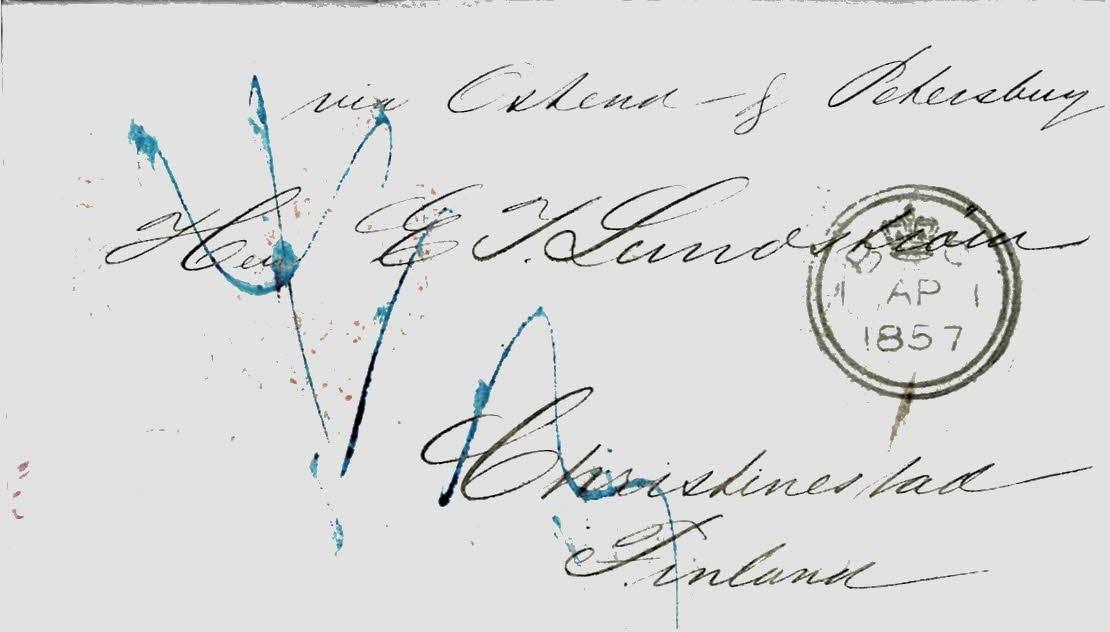 via Ostend & Petersburg
Herr E. T. Lundström
1 AP 1
1857
Christinestad
Finland